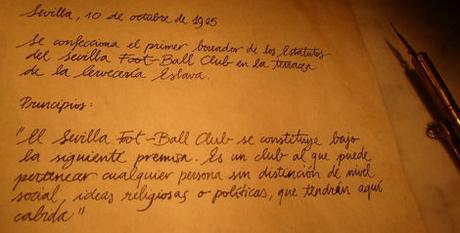 Sevilla, 10 de octubre de 1905
Se confecciona el primer borrador de los Estatutos
del Sevilla Foot-Ball Club en la terraza
de la Cervecería Eslava.
Principios:
"El Sevilla Foot-Ball Club se constituye bajo
la siguiente premisa. Es un club al que puede
pertenecer cualquier persona sin distinción de nivel
social, ideas religiosas o políticas, que tendrán aquí
cabida"